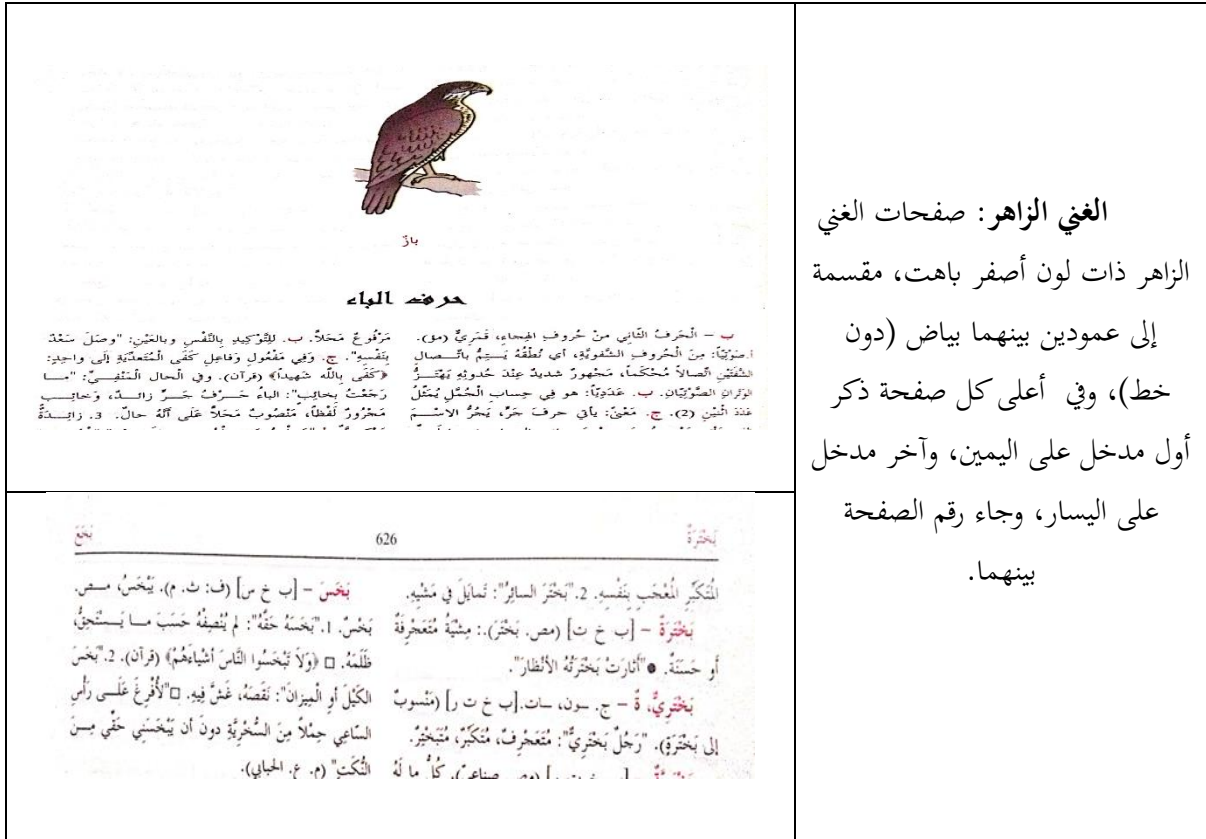 الغني الزاهر: صفحات الغني
الزاهر ذات لون أصفر باهت، مقسمة
إلى عمودين بينهما بياض (دون
خط)، وفي أعلى كل صفحة ذكر
أول مدخل على اليمين، وآخر مدخل
على اليسار، وجاء رقم الصفحة
بينهما.
بازٌ
حرف الباء
ب – الْحَرفُ الثَّانِي مِنْ حُروفِ الهِجاءِ، قَمَرِيٌّ (مؤ).
أ.صَوْتِيّاً: مِنَ الْحُروفِ الشَّفَوِيَّةِ، أَي نُطْقُهُ يَــتِمُّ بِاتِّــصالِ
الشَّفَتَيْنِ اتِّصالاً مُحْكَماً، مَجْهورٌ شَديدٌ عِنْدَ حُدوثِهِ يَهْتَــزُّ
الوَتَرانِ الصَّوْتِيَّانِ. ب. عَدَدِيّاً: هو فِي حِسابِ الْجُمَّلِ يُمَثِّلُ
عَدَدَ اثْنَيْنِ (2). ج. مَعْنىً: يأتي حرفَ جَرٍّ، يَجُرُّ الاسْــمَ
مَرْفُوعٌ مَحَلاًّ. ب. لِلتَّوْكِيدِ بِالنَّفْسِ وبالعَيْنِ: "وصَلَ سَعْدٌ
بِنَفْسِهِ". ج. وَفِي مَفْعُولِ وَفاعِلِ كَفَى الْمُتَعَدِّيَةِ إلَى واحِدٍ:
﴿كَفَى بِاللَّهِ شَهِيداً﴾ (قرآن). وفِي الْحالِ الْمَنْفِــيِّ: "مــا
رَجَعْتُ بِخائِبٍ": الباءُ حَــرْفُ جَــرٍّ زائــدٌ، وَخائِــبٍ
مَجْرُورٌ لَفْظاً، مَنْصُوبٌ مَحَلاًّ عَلَى أَنَّهُ حالٌ. 3. زائِــدَةٌ
بَخْتَرَةٌ
626
بَخَعَ
الْمُتَكَبِّرِ الْمُعْجَبِ بِنَفْسِهِ. 2."بَخْتَرَ السائِرُ": تَمايَلَ فِي مَشْيِهِ.
بَخْتَرَةٌ – [ب خ ت] (مص. بَخْتَرَ).: مِشْيَةٌ مُتَعَجْرِفَةٌ
أَو حَسَنَةٌ. ●"أَثارَتْ بَخْتَرَتُهُ الأَنْظارَ".
بَخْتَرِيٌّ، ةٌ – ج. ـون، ـات.[ب خ ت ر] (مَنْسوبٌ
إِلَى بَخْتَرَةٍ). "رَجُلٌ بَخْتَرِيٌّ": مُتَعَجْرِفٌ، مُتَكَبِّرٌ، مُتَبَخْتِرٌ.
بَخَسَ – [ب خ س] (ف: ث. م). يَبْخَسُ، مــص.
بَخْسٌ. 1."بَخَسَهُ حَقَّهُ": لَم يُنْصِفْهُ حَسَبَ مــا يَــسْتَحِقُّ،
ظَلَمَهُ. □ ﴿وَلاَ تَبْخَسُوا النَّاسَ أَشْياءَهُمْ﴾ (قرآن). 2."بَخَسَ
الكَيْلَ أَوِ الْمِيزانَ": نَقَصَهُ، غَشَّ فِيهِ. □"لأُفْرِغَ عَلَــى رَأْسِ
السَّاعِي حِمْلاً مِنَ السُّخْرِيَّةِ دونَ أن يَبْخَسَنِي حَقِّي مِــنَ
النُّكَتِ" (م. ع. الحبابي).